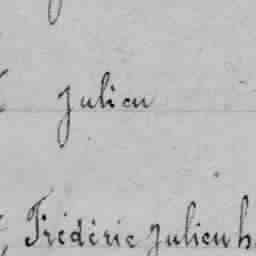 Julien
Frédéric Julien h